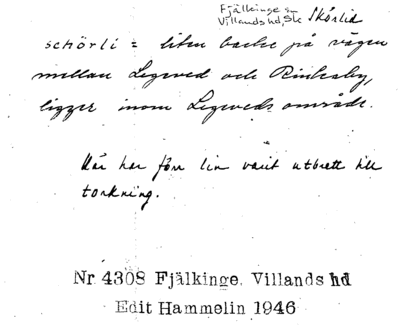 Fjälkinge sn
Villands hd, Sk
Skörlid
schörli = liten backe på vägen
mellan Legeved och Rinkaby,
ligger inom Legeveds område.
Här har förr lin varit utbrett till
torkning.
Nr 4308 Fjälkinge, Villands hd
Edit Hammelin 1946